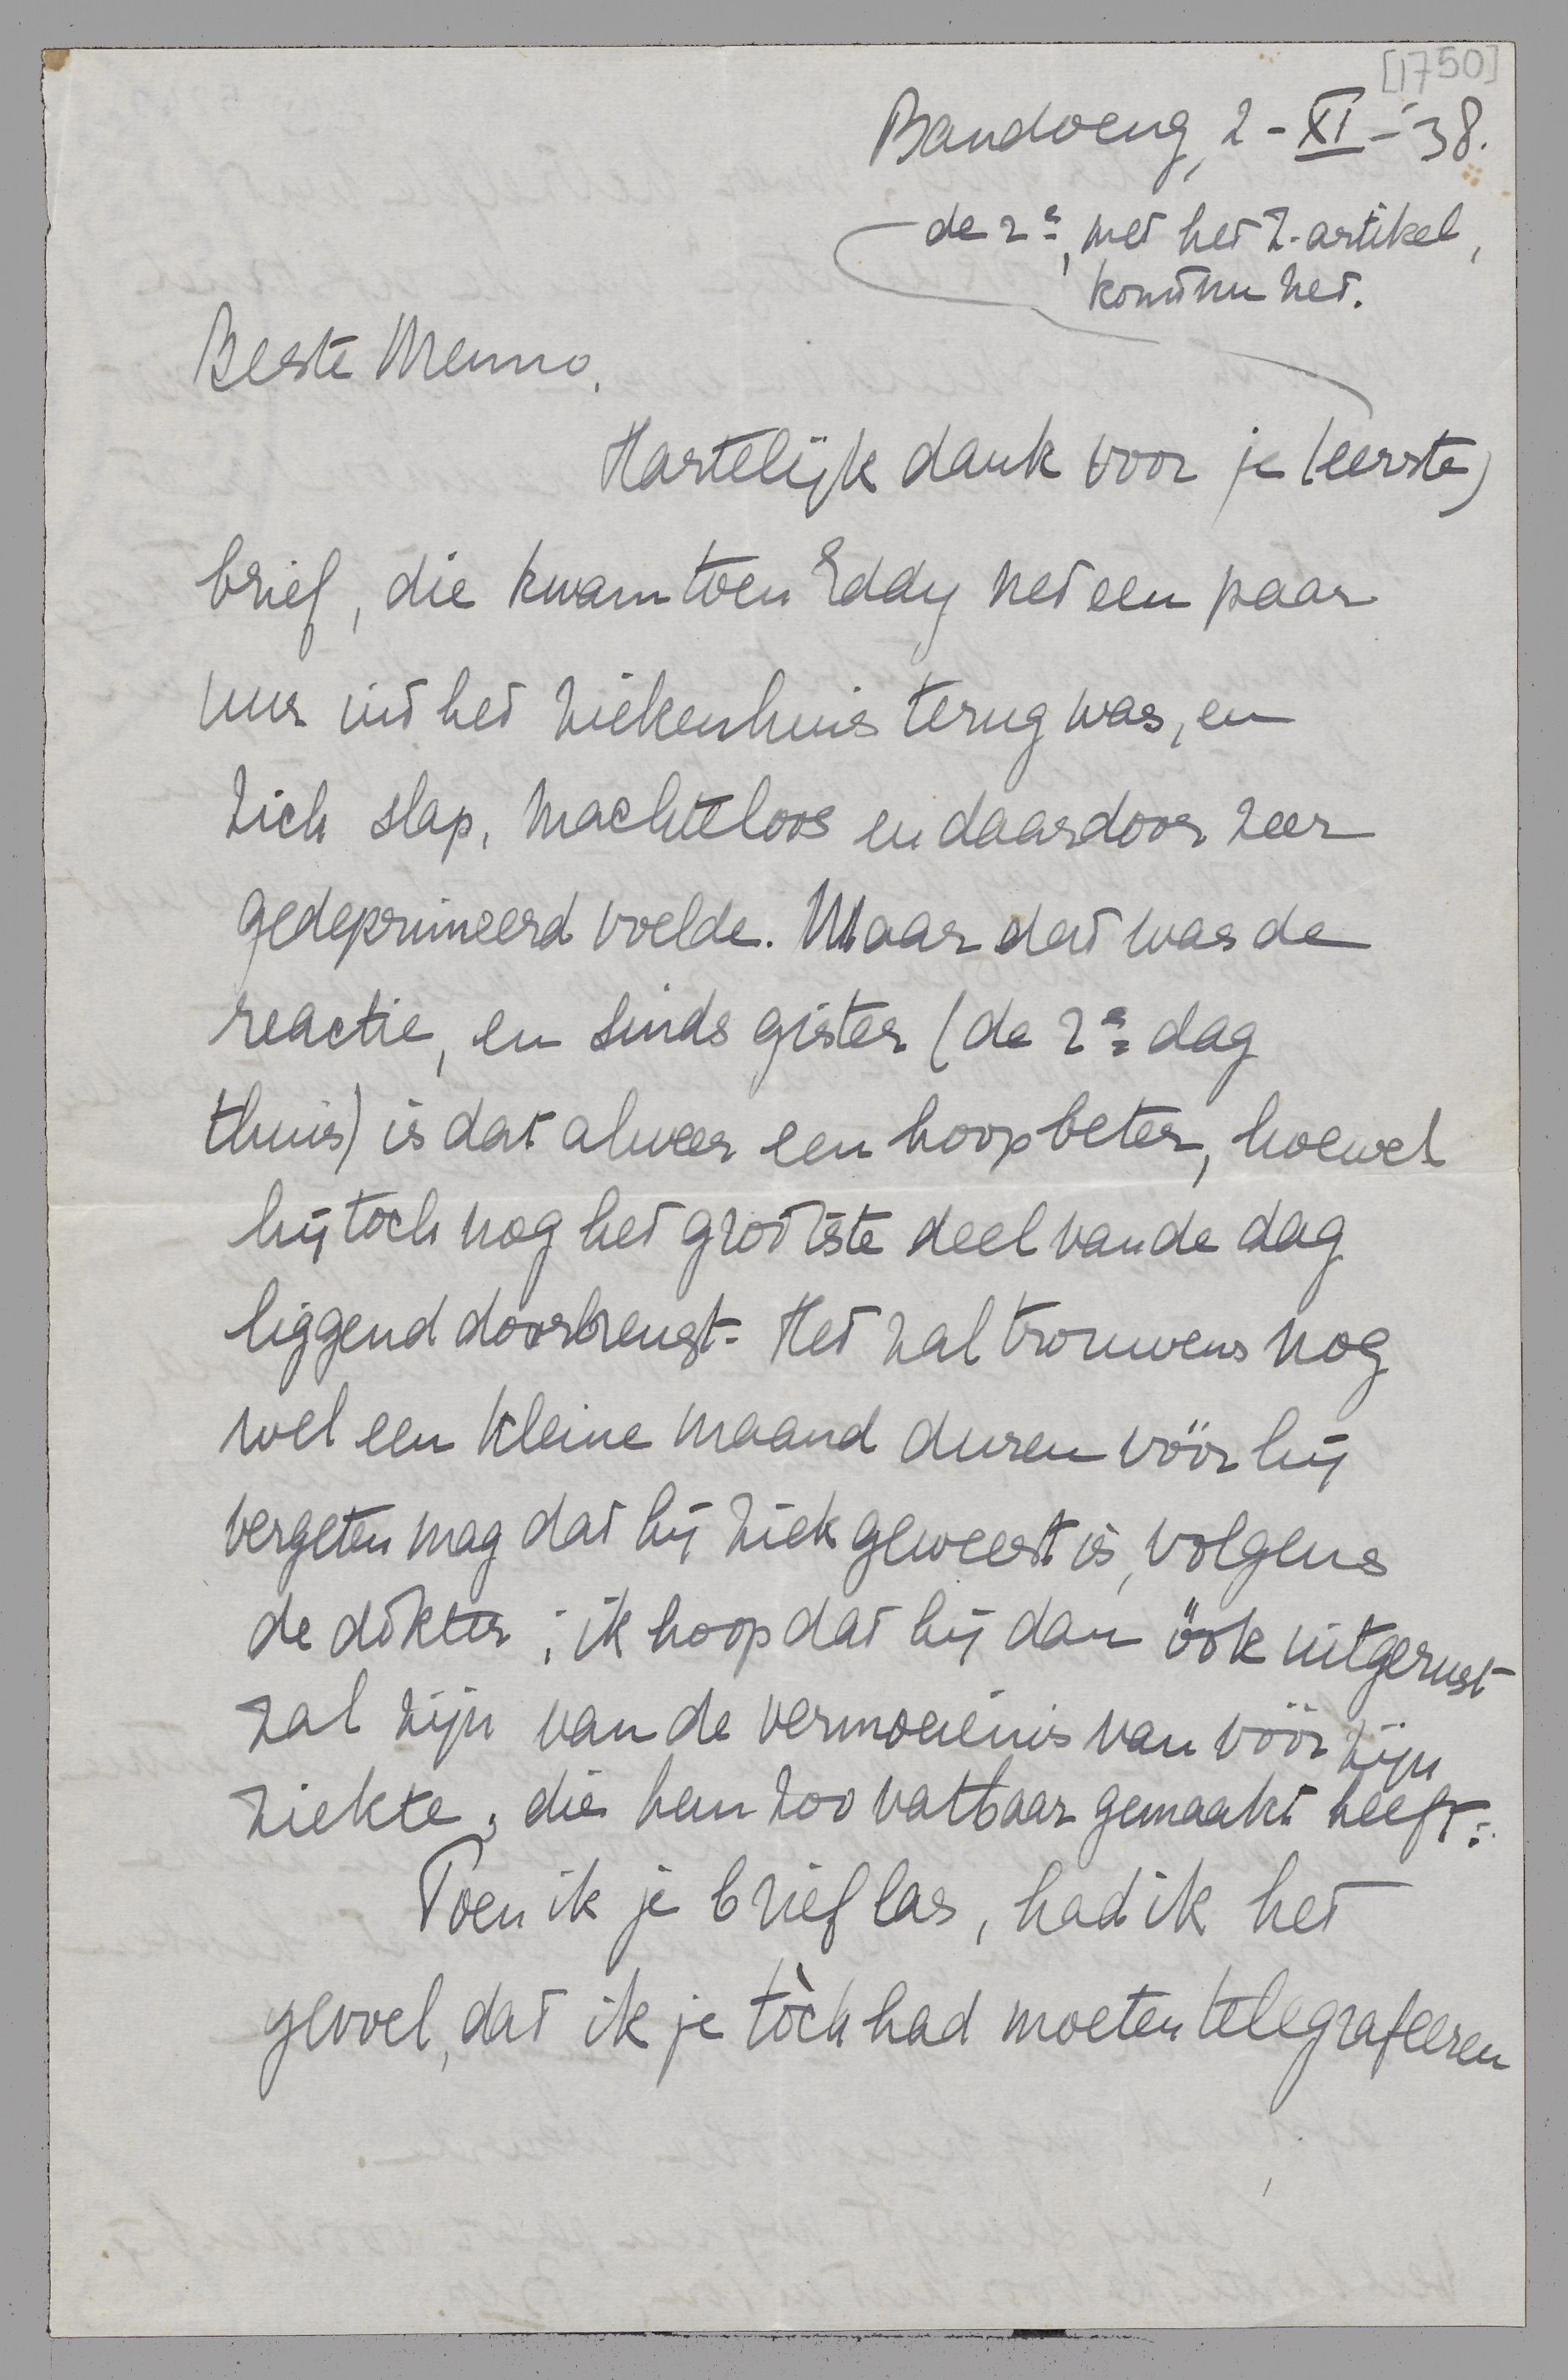 [1750]
Bandoeng, 2-XI-'38.
de 2e, met het Z.artikel,
komt nu net.
Beste Menno,
Hartelijk dank voor je (eerste)
brief, die kwam toen Eddy net een paar
uur uit het ziekenhuis terug was, en
zich slap, machteloos en daardoor zeer
gedeprimeerd voelde. Maar dat was de
reactie, en sinds gister (de 2e dag
thuis) is dat alweer een hoop beter, hoewel
hij toch nog het grootste deel van de dag
liggend doorbrengt. Het zal trouwens nog
wel een kleine maand duren vóór hij
vergeten mag dat hij ziek geweest is, volgens
de dokter; ik hoop dat hij dan óók uitgerust
zal zijn van de vermoeienis van vóór zijn
ziekte, die hem zoo vatbaar gemaakt heeft.
Toen ik je brief las, had ik het
gevoel, dat ik je tòch had moeten telegrafeeren